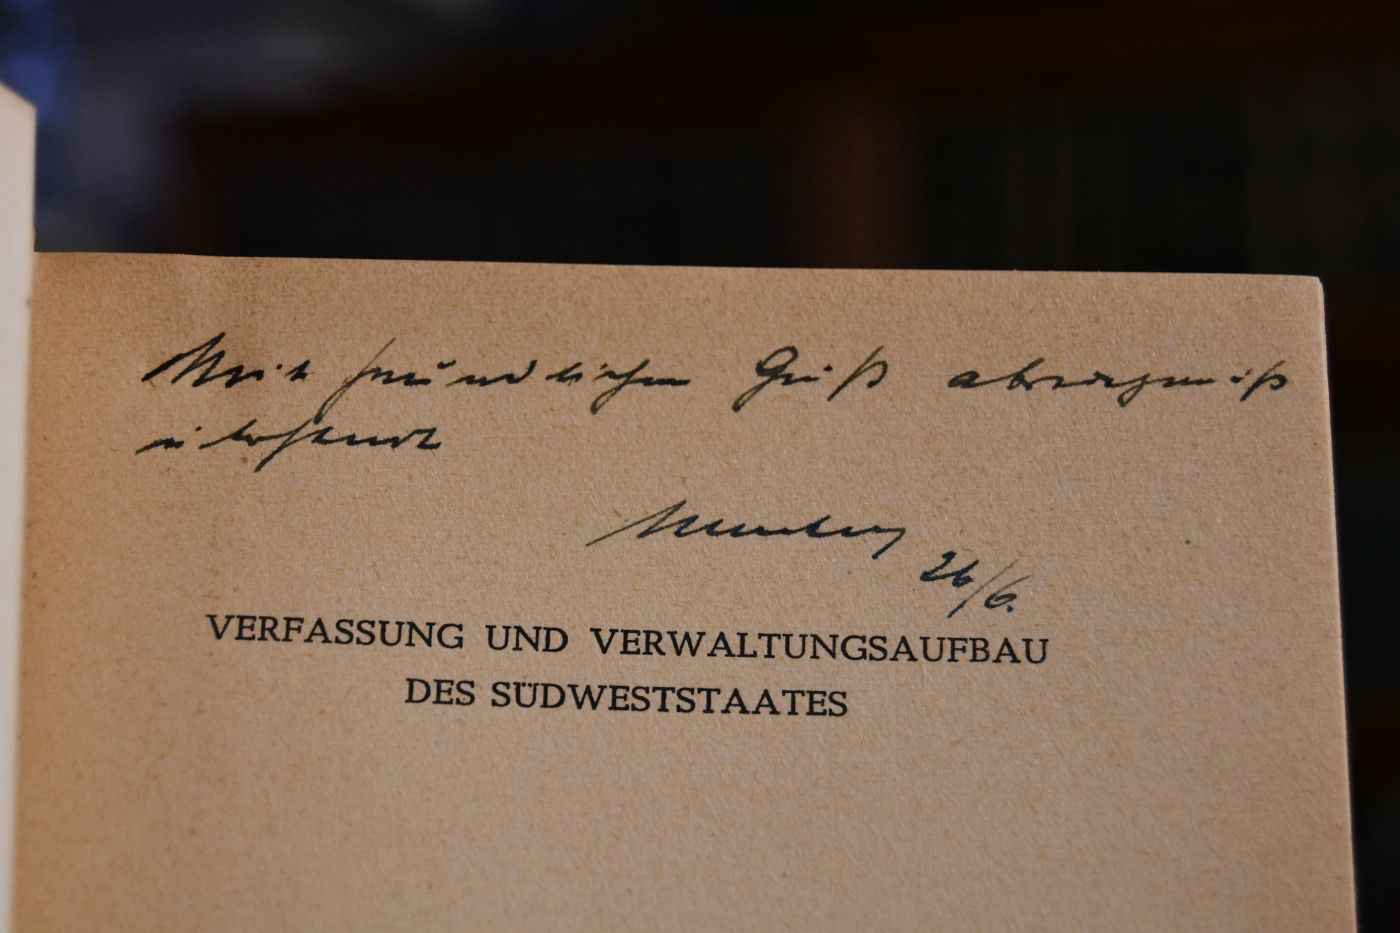 Mit freundlichem Gruß abredegemäß
übersandt
26/6.
VERFASSUNG UND VERWALTUNGSAUFBAU
DES SÜDWESTSTAATES